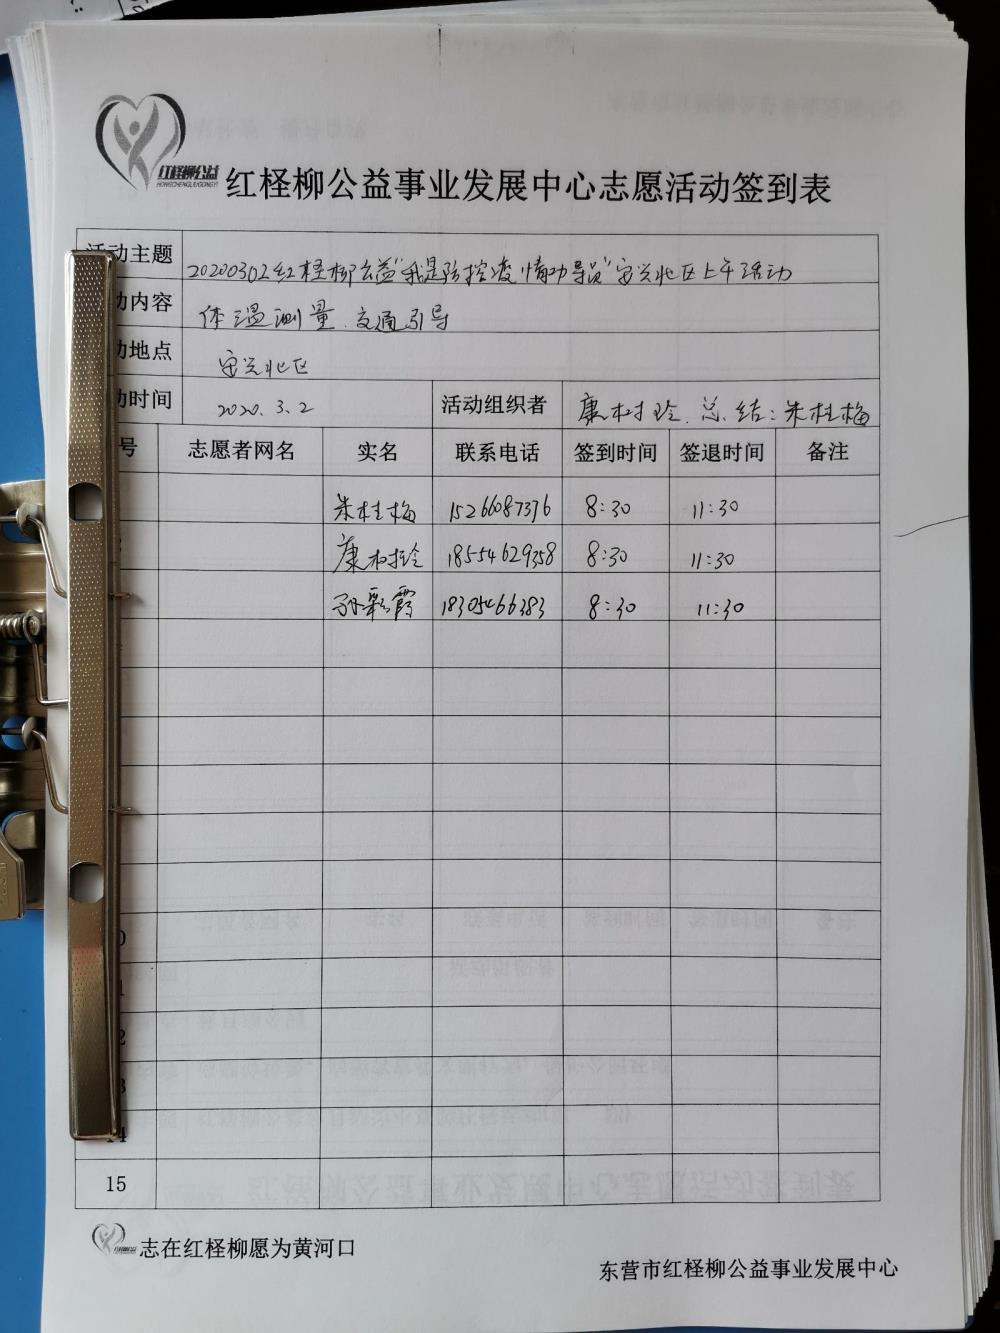 红柽柳公益
HONGCHENGLIUGONGYI
红柽柳公益事业发展中心志愿活动签到表
活动主题 20200302红柽柳公益"我是防控疫情劝导员"安兴北区上午活动
动内容 体温测量.交通引导
动地点 安兴北区
动时间 2020.3.2 活动组织者 康树玲.总结:朱桂梅
号 志愿者网名 实名 联系电话 签到时间 签退时间 备注
朱桂梅 15266087376 8:30 11:30
康树玲 18554629358 8:30 11:30
孙彩霞 18305466383 8:30 11:30
0
1
2
3
14
15
志在红柽柳愿为黄河口
东营市红柽柳公益事业发展中心